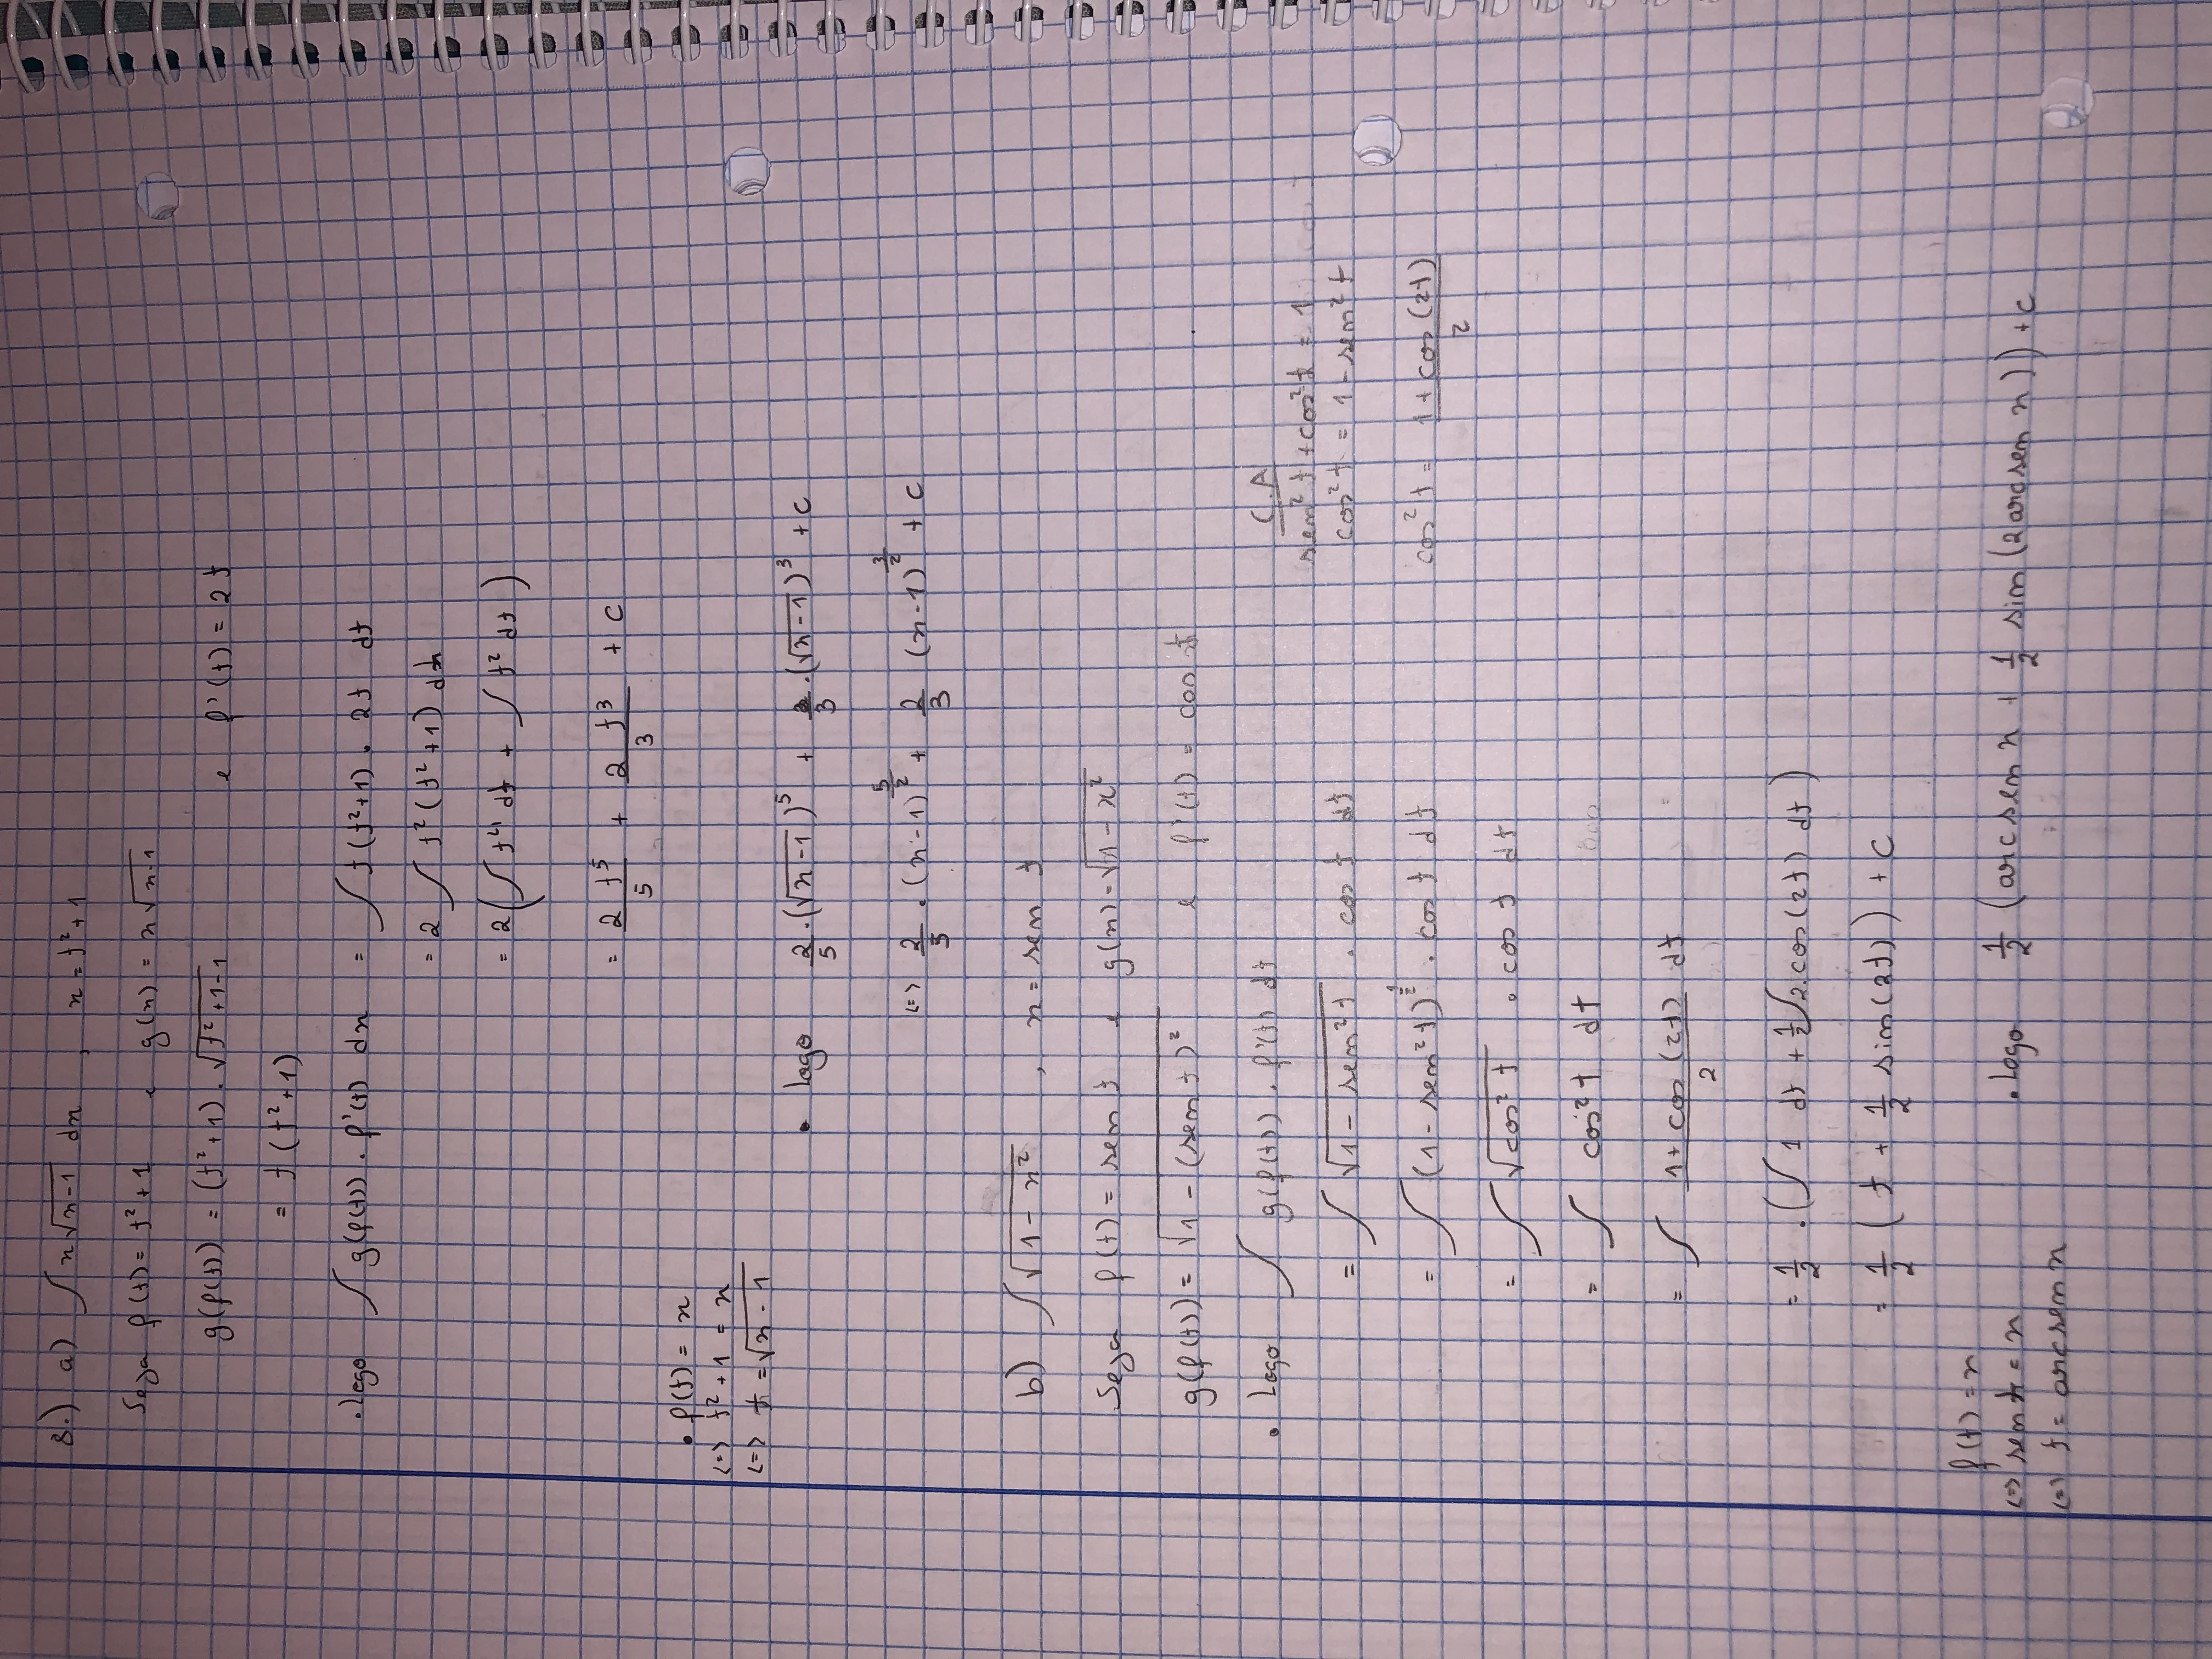 8.) a) ∫ x√(x-1) dx , x = t² + 1
Seja f(t) = t² + 1 e g(x) = x√(x-1)
g(f(t)) = (t²+1) . √(t²+1-1) e f'(t) = 2t
= t (t²+1)
. Logo ∫ g(f(t)) . f'(t) dx = ∫ t(t²+1) . 2t dt
= 2 ∫ t² (t²+1) dt
= 2 (∫ t⁴ dt + ∫ t² dt)
= 2 t⁵/5 + 2 t³/3 + C
• f(t) = x
<=> t² + 1 = x
<=> t = √(x-1)
• Logo 2/5 . (√(x-1))⁵ + 2/3 . (√(x-1))³ + C
<=> 2/5 . (x-1)^(5/2) + 2/3 (x-1)^(3/2) + C
b) ∫ √(1-x²) , x = sen t
Seja f(t) = sen t e g(x) = √(1-x²)
g(f(t)) = √(1-(sen t)²) e f'(t) = cos t
• Logo ∫ g(f(t)) . f'(t) dt
= ∫ √(1-sen²t) . cos t dt
= ∫ (1-sen²t)^(1/2) . cos t dt
= ∫ √(cos²t) . cos t dt
= ∫ cos²t dt
= ∫ (1+cos(2t))/2 dt
= 1/2 . (∫ 1 dt + 1/2 ∫ 2.cos(2t) dt)
= 1/2 (t + 1/2 sin(2t)) + C
C.A
sen²t + cos²t = 1
cos²t = 1 - sen²t
cos²t = (1+cos(2t))/2
f(t) = x
<=> sen t = x
<=> t = arcsen x
• Logo 1/2 (arcsen x + 1/2 sin(2arcsen x)) + C